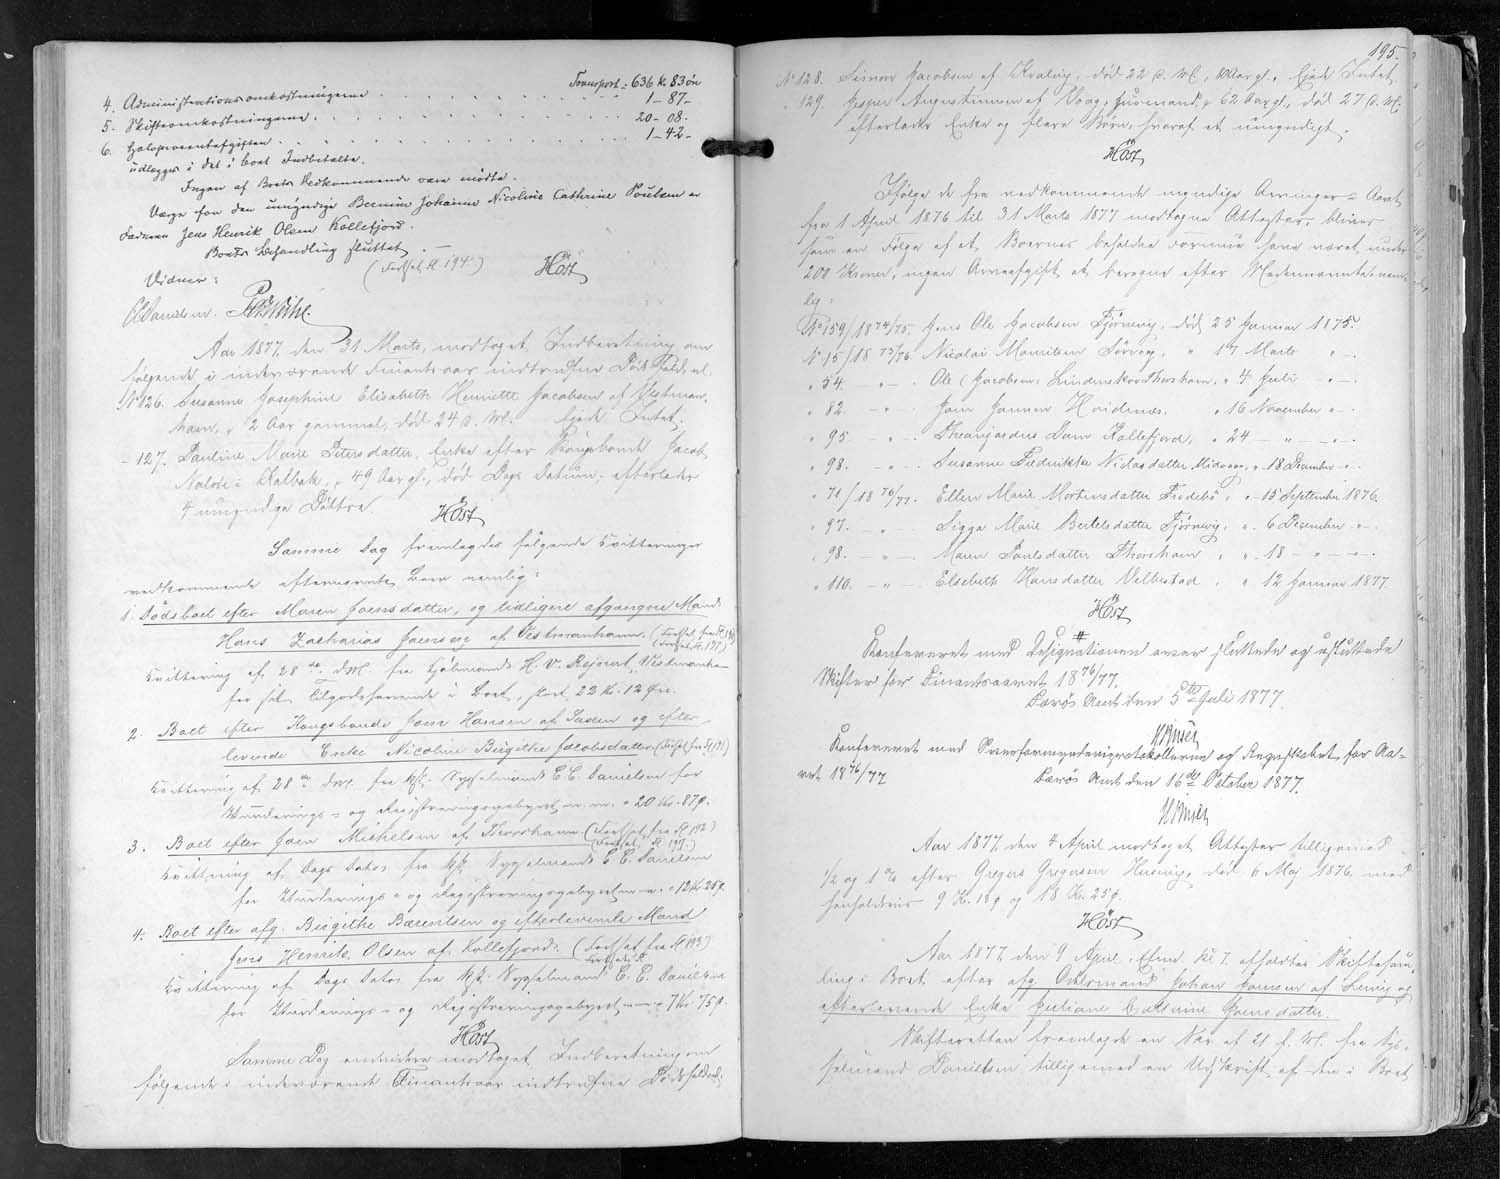 Transport: 636 K 83 Øre
4. Administrationsomkostningerne 1 - 87 -
5. Skifteomkostningerne 20 - 08 -
6. Halvprocentafgiften 1 - 42 -
udlægges i det i Boet Indbetalte.
Ingen af Boets Vedkommende vare mødte.
Værge for den umyndige Bernine Johanne Nicoline Cathrine Poulsen er
Faderen Jens Henrik Olsen Kollefjord.
Boets Behandling sluttet. —
(Fortsat fl. 194) Høst
Vidner:
C. Danielsen.
Aar 1877, den 31 Marts, modtaget Indberetning om
følgende i indeværende Finantsaar indtrufne Dødsfald, nl.
No 126. Susanne Josephine Elisabeth Henriette Jacobsen af Vestman-
havn, 2 Aar gammel, død 24 d. M. Ejede Intet.
- 127. Pauline Marie Petersdatter, Enke efter Kongsbonde Jacob
i Kalbak, 49 Aar gl., død Dags Datum; efterlader
4 umyndige Døttre. Høst
Samme Dag fremlagdes følgende Kvitteringer
vedkommende efternævnte Boer nemlig:
1. Dødsboet efter Maren Joensdatter, og tidligere afgangne Mand
Hans Zacharias Joensen af Vestmanhavn. (Fortsat fra fl.
Kvittering af 28de d. M. fra H. V. Vestmanhavn
for sit Tilgodehavende i Boet, stort 22 K. 12 Øre.
2. Boet efter Kongsbonde Joen Hansen af Saxen og efter-
levende Enke Nicoline Birgithe Jacobsdatter (Fortsat fra fl 191)
Kvittering af 28de d. M. fra Kst. Sysselmand E. C. Danielsen for
Vurderings- og Registreringsgebyret m. m. 20 Kr. 87 ø.
3. Boet efter Joen Michelsen af Thorshavn (Fortsat fra fl 192)
(Fortsat fl. 197.)
Kvittering af Dags Dato fra Kst. Sysselmand E. C. Danielsen
for Vurderings- og Registreringsgebyret m. m. 12 Kr 25 ø.
4. Boet efter afg. Birgithe Barentsen og efterlevende Mand
Jens Henrik Olsen af Kollefjord. (Fortsat fra fl 193)
Kvittering af Dags Dato fra Kst. Sysselmand E. C. Danielsen
for Vurderings- og Registreringsgebyret m. m. 7 Kr 75 ø.
Høst
Samme Dag endvidere modtaget Indberetning om
følgende i indeværende Finantsaar indtrufne Dødsfald, nl.
195.
No 128. Simon Jacobsen af Kvalvig, død 22 d. M., Aar gl., Ejede Intet.
" 129. Jesper Augustinussen af Vaag, Huusmand, 62 Aar gl., død 27 d. M.
efterlader Enke og flere Børn, hvoraf et umyndigt.
Høst
Ifølge de fra vedkommende myndige Arvinger i Aaret
fra 1 April 1876 til 31 Marts 1877 modtagne Attester, bliver
som en Følge af at Boernes beholdne Formue have været under
200 Kroner, ingen Arveafgift at beregne efter Nedennævnte nem-
lig:
No 159/1874/75. Jens Ole Jacobsen Tjørnevig, død 25 Januar 1875.
No 15/1875/76 Nicolai Mouritsen Sørvaag, " 17 Marts " -
" 54. - " - Ole Jacobsen Lindenskov Thorshavn, " 4 Juli - " -
" 82. - " - Joen Joensen Hvidenæs, " 16 November " -
" 95 - " - Dam Kollefjord, " 24 - " - " -
" 98. - " - Susanne Fredrikke Niclasdatter Midvaag, " 18 December " -
" 71/1876/77. Ellen Marie Mortensdatter Funding, " 15 September 1876.
" 97. - " - Sigga Marie Bertelsdatter Tjørnevig, " 6 December - " -
" 98. - " - Maren Poulsdatter Thorshavn, " 18 - " - " -
" 110. - " - Elsebeth Hansdatter Velbestad, " 12 Januar 1877
Høst
Konfereret med Designationen over sluttede og usluttede
Skifter for Finantsaaret 1876/77.
Færøs Amt den 5te Juli 1877.
Konfereret med Overformynderiprotokollerne og Regnskabet for Aa-
ret 1876/77 Færøs Amt den 16de October 1877.
Aar 1877, den 4 April modtaget Attester tilligemed
1/2 og 1 % efter Gregers Gregersen Husevig, død 6 Maj 1876, med
henholdsvis 9 Kr. 13 ø og 18 Kr. 25 ø.
Høst
Aar 1877, den 9 April, Efmd. Kl 7, afholdtes Skiftesam-
ling i Boet efter afg. Odelsmand Johan Hansen af Leirvig og
efterlevende Enke Juliane Cathrine Joensdatter.
Skifteretten fremlagde en Skr. af 21 f. M. fra Sys-
selmand Danielsen, tilligemed en Udskrift af den i Boet